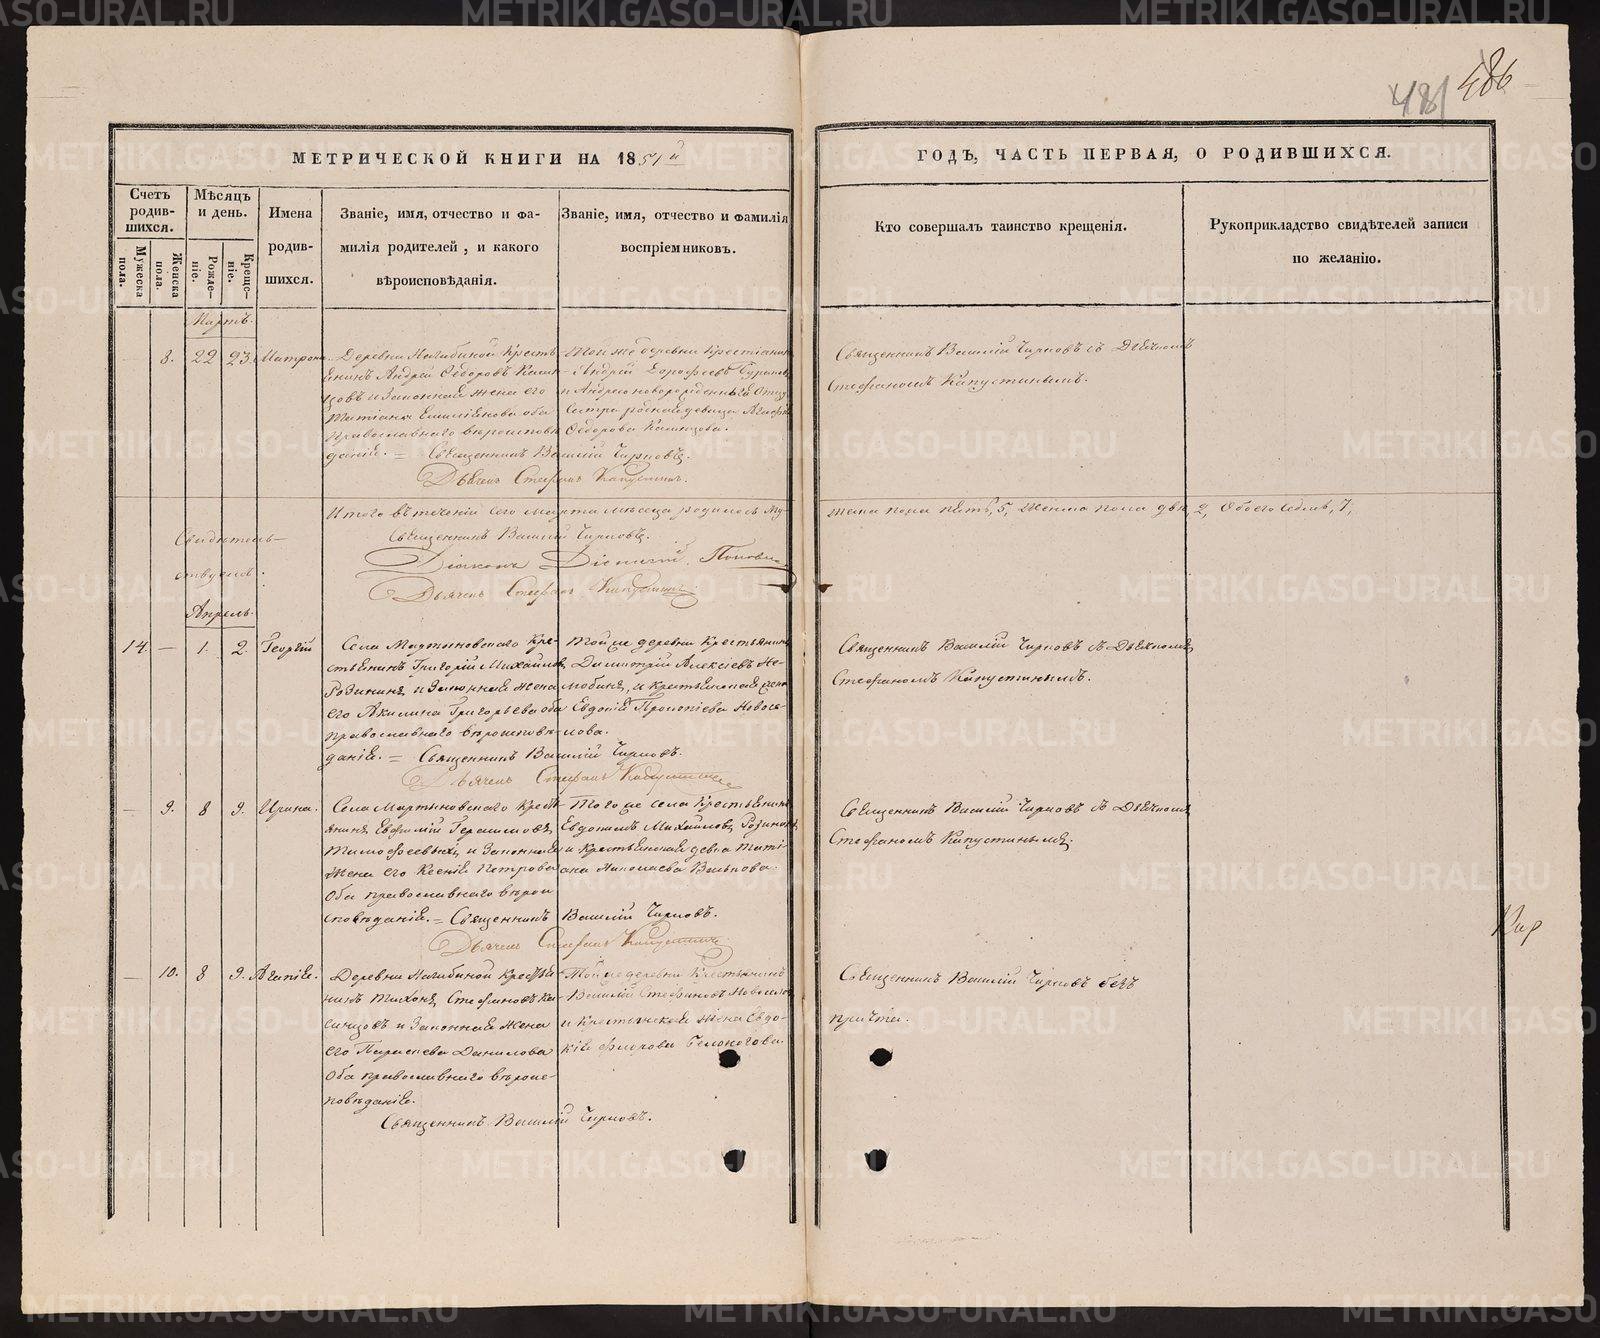 481 486
МЕТРИЧЕСКОЙ КНИГИ НА 1851й
ГОДЪ, ЧАСТЬ ПЕРВАЯ, О РОДИВШИХСЯ.
Счетъ родив-шихся.
Мужеска пола.
Женска пола.
Мѣсяцъ и день.
Рожде-ніе.
Креще-ніе.
Имена
родив-
шихся.
Званіе, имя, отчество и фа-
милія родителей, и какого
вѣроисповѣданія.
Званіе, имя, отчество и фамилія
воспріемниковъ.
Кто совершалъ таинство крещенія.
Рукоприкладство свидѣтелей записи
по желанію.
Мартъ.
— 8. 22 23. Матрона
Деревни Нагибиной Кресть
янинъ Андрей Ѳедоровъ
и Законная жена его
Татіана Емиліянова оба
православнаго вѣроисповѣ
данія. = Священникъ Василій Чирковъ.
Дьячекъ Стефанъ Капустинъ.
Той же деревни Крестіанинъ
Андрей Дорофеевъ
Сестра родная девица
Ѳедорова
Священникъ Василій Чирковъ съ Дьячкомъ
Стефаномъ Капустинымъ.
Итого въ теченіи сего Марта мѣсяца родилось Му-
жеска пола пять, 5, Женска пола две, 2, Обоего седмь, 7,
Свидѣтель-
ствуемъ:
Священникъ Василій Чирковъ.
Діаконъ Діонисій Поповъ
Дьячекъ Стефанъ Капустинъ
Апрель.
14. — 1. 2. Георгій
Села Мартыновскаго Кре-
стьянинъ Григорій Михайловъ
Розинъ и Законная жена
его Акилина Григорьева оба
православнаго вѣроисповѣ-
данія. = Священникъ Василій Чирковъ.
Дьячекъ Стефанъ Капустинъ
Той же деревни Крестьянинъ
Димитрій Алексіевъ Не-
и Крестьянская жена
Евдокія Прокопіева Новосе-
лова.
Священникъ Василій Чирковъ съ Дьячкомъ
Стефаномъ Капустинымъ.
— 9. 8 9. Ирина.
Села Мартыновскаго Кресть-
янинъ Евфимій Герасимовъ
Тимофеевыхъ и Законная
жена его Ксенія Петрова
Оба православнаго вѣрои
сповѣданія. = Священникъ Василій Чирковъ.
Дьячекъ Стефанъ Капустинъ
Того же села Крестьянинъ
Евдокимъ Михайловъ
и Крестьянская девка Тати-
ана Николаева
Священникъ Василій Чирковъ съ Дьячкомъ
Стефаномъ Капустинымъ.
— 10. 8 9. Агапія.
Деревни Нагибиной Крестья
нинъ Тихонъ Стефановъ Ка-
занцовъ и Законная жена
его Параскева Данилова
Оба православнаго вѣроис-
повѣданія.
Священникъ Василій Чирковъ.
Той же деревни Крестьянинъ
Василій Стефановъ Новоселовъ
и Крестьянская жена Евдо-
кія Фирова Белоногова.
Священникъ Василій Чирковъ безъ
причта.